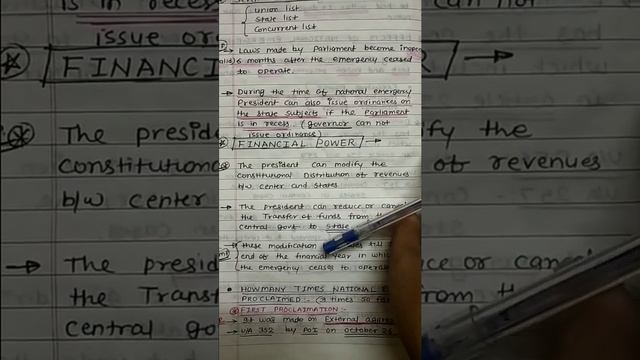 Union list
State list
Concurrent list
→ Laws made by Parliament become inope
6 months after the emergency ceased
to operate.
→ During the time of national emergency
President can also issue ordinances on
the state subjects if the Parliament
is in recess. (governor can not
issue ordinanse)
FINANCIAL POWER →
The president can modify the
constitutional Distribution of revenues
b/w center and states
→ The president can reduce or cance
the Transfer of funds from th
central govt to state
→ these modification till
end of the financial year in which
the emergency ceases to operate
• HOWMANY TIMES NATIONAL E
PROCLAIMED:- (3 times so fa
FIRST PROCLAIMATION:-
→ It was made on External aggres
→ U/A 352 by POI on october 26